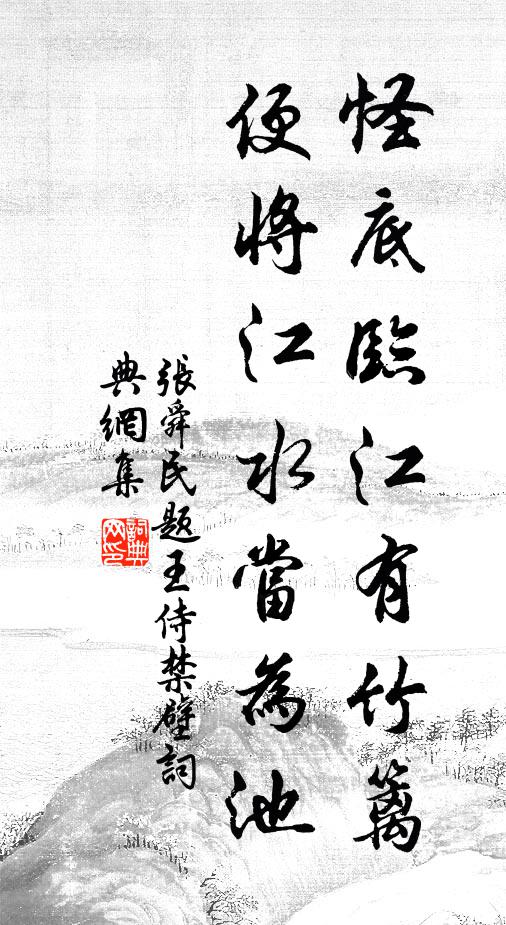 怪底臨江有竹籬
便將江水當為池
張舜民題王侍禁壁詞
典網集
詞典
网印